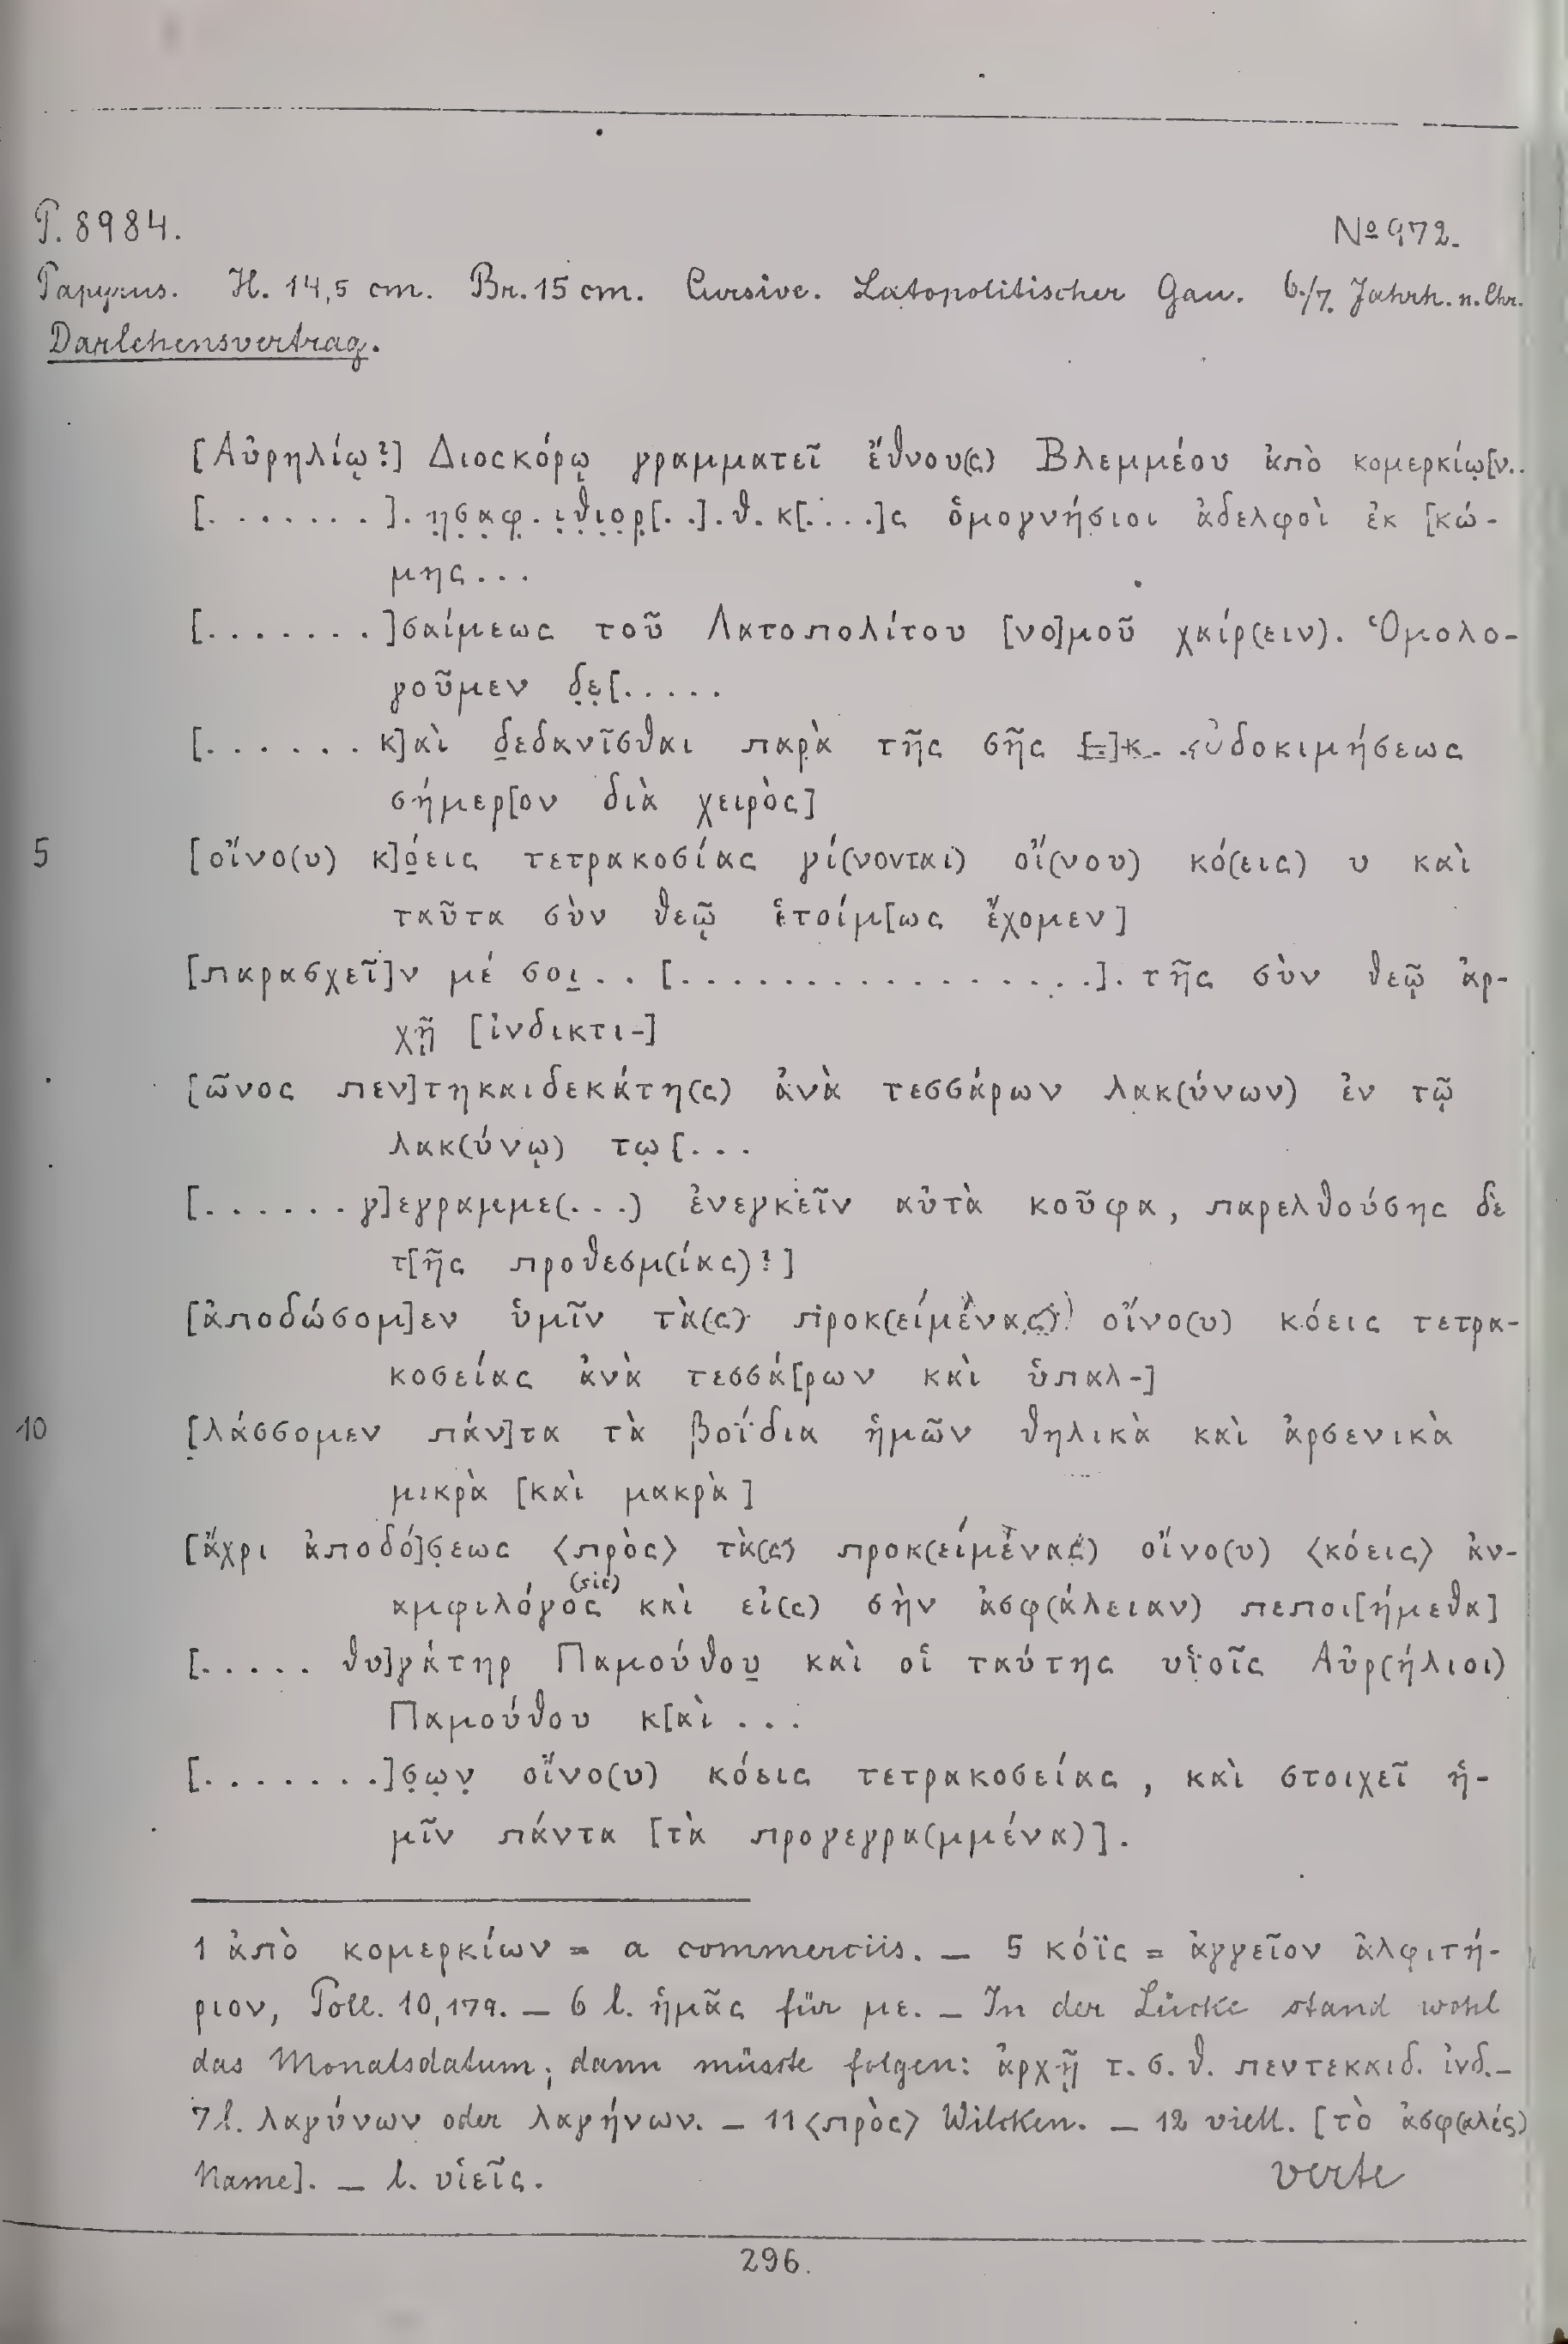 P. 8984.
No 972.
Papyrus. H. 14,5 cm. Br. 15 cm. Cursive. Latopolitischer Gau. 6./7. Jahrh. n. Chr.
Darlehensvertrag.
[Αὐρηλίῳ?] Διοσκόρῳ γραμματεῖ ἔθνου(ς) Βλεμμέου ἀπὸ κομερκίω̣[ν..
[.......]. η̣σ̣α̣φ̣. ι̣θ̣ι̣ο̣ρ̣[..].θ. κ[....]ς ὁμογνήσιοι ἀδελφοὶ ἐκ [κώ-
μης...
[.......]σαίμεως τοῦ Λατοπολίτου [νο]μοῦ χαίρ(ειν). Ὁμολο-
γοῦμεν δ̣ε̣[.....
[...... κ]αὶ δ̣εδανῖσθαι παρὰ τῆς σῆς εὐδοκιμήσεως
σήμερ[ον διὰ χειρὸς]
5 [οἴνο(υ) κ]ό̣εις τετρακοσίας γί(νονται) οἴ(νου) κό(εις) υ καὶ
ταῦτα σὺν θεῷ ἑτοίμ[ως ἔχομεν]
[παρασχεῖ]ν μέ σοι̣..[.................]. τῆς σὺν θεῷ ἀρ-
χῇ [ἰνδικτι-]
[ῶνος πεν]τηκαιδεκάτη(ς) ἀνὰ τεσσάρων λακ(ύνων) ἐν τῷ
λακ(ύνῳ) τῳ[...
[...... γ]εγραμμε(...) ἐνεγκεῖν αὐτὰ κοῦφα, παρελθούσης δὲ
τ[ῆς προθεσμ(ίας)?]
[ἀποδώσομ]εν ὑμῖν τὰ(ς) προκ(ειμένας) οἴνο(υ) κόεις τετρα-
κοσείας ἀνὰ τεσσά[ρων καὶ ὑπαλ-]
10 [λάσσομεν πάν]τα τὰ βοΐδια ἡμῶν θηλικὰ καὶ ἀρσενικὰ
μικρὰ [καὶ μακρὰ]
[ἄχρι ἀποδό]σ̣εως ⟨πρὸς⟩ τὰ(ς) προκ(ειμένας) οἴνο(υ) ⟨κόεις⟩ ἀν-
αμφιλόγος (sic) καὶ εἰ(ς) σὴν ἀσφ(άλειαν) πεποι[ήμεθα]
[..... θυ]γάτηρ Παμούθου̣ καὶ οἱ ταύτης υἱοῖς Αὐρ(ήλιοι)
Παμούθου κ[αὶ ...
[.......]σ̣ω̣ν̣ οἴνο(υ) κόεις τετρακοσείας, καὶ στοιχεῖ ἡ-
μῖν πάντα [τὰ προγεγρα(μμένα)].
1 ἀπὸ κομερκίων = a commerciis. — 5 κόϊς = ἀγγεῖον ἀλφιτή-
ριον, Poll. 10,179. — 6 l. ἡμᾶς für με. — In der Lücke stand wohl
das Monatsdatum; dann müsste folgen: ἀρχῇ τ. σ. θ. πεντεκαιδ. ἰνδ. —
7 l. λαγύνων oder λαγήνων. — 11 ⟨πρὸς⟩ Wilcken. — 12 viell. [τὸ ἀσφ(αλές)
Name]. — l. υἱεῖς.
verte
296.